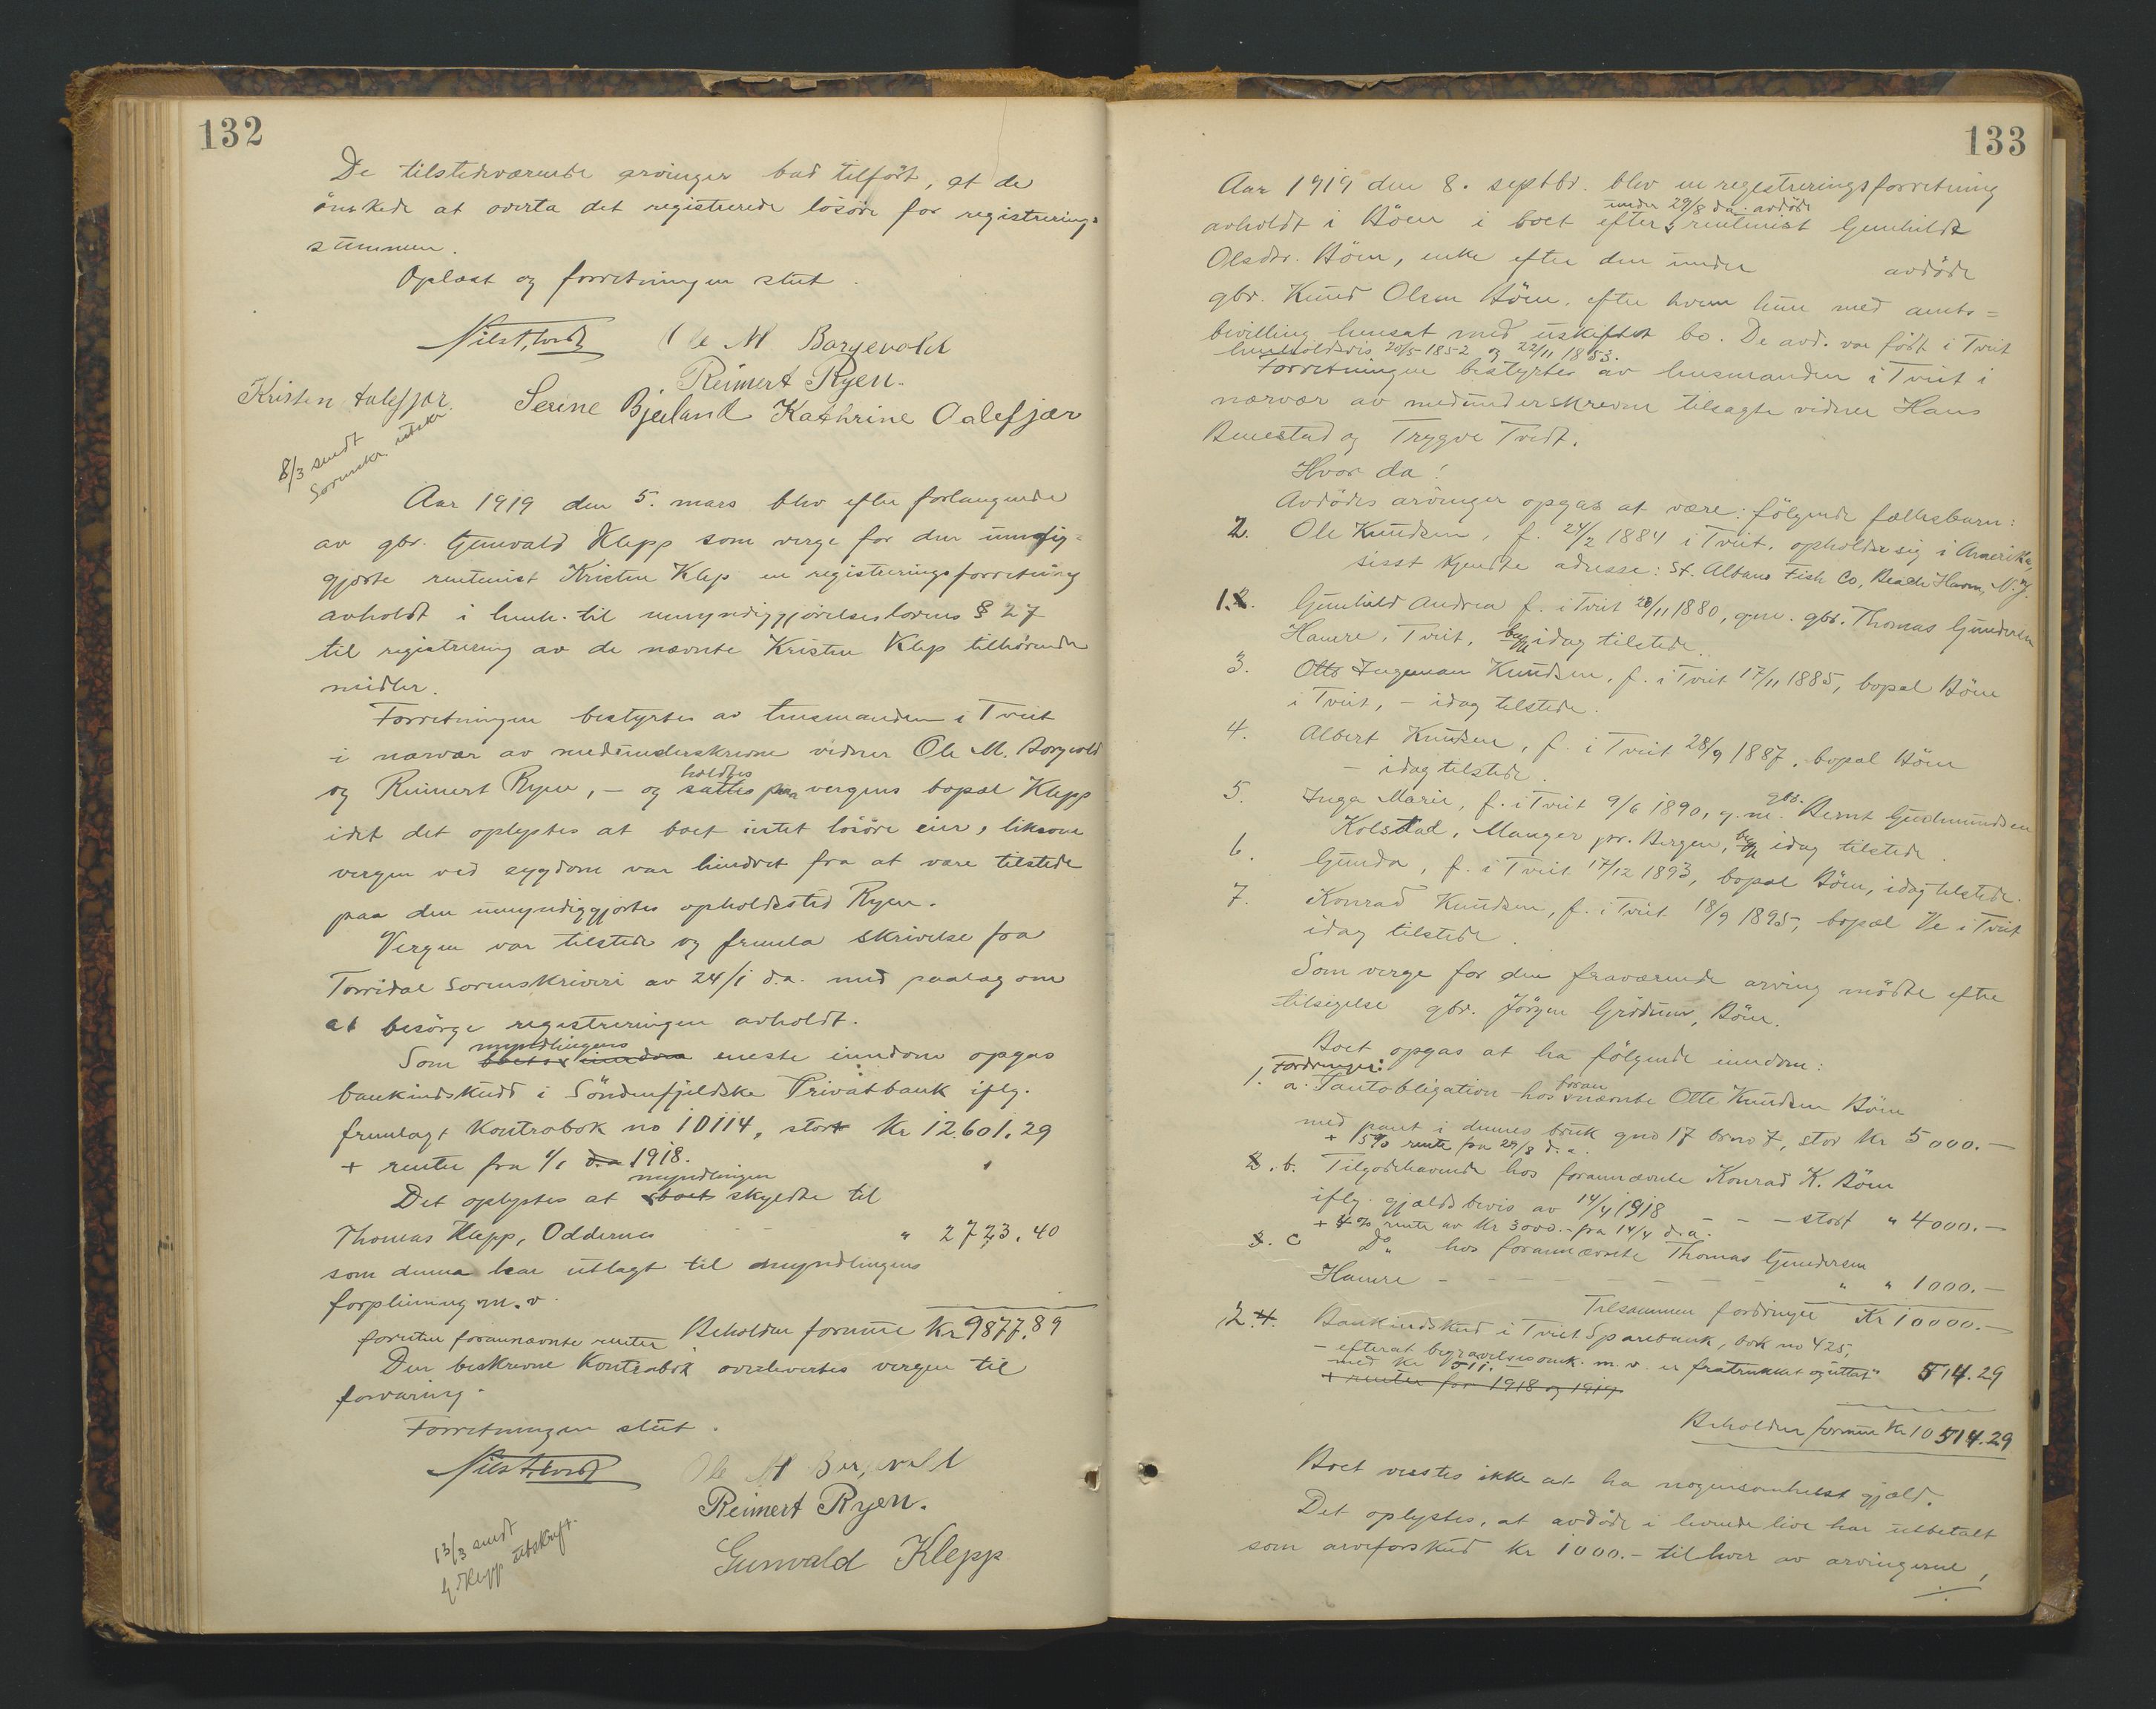 132
De tilstedeværende arvinger bad tilført, at de
ønskede at overta det registrerede løsøre for registrerings-
summen.
Oplæst og forretningen slut.
Ole M Borgevold
Reimert Ryen.
Kristen Aalefjær. Serine Bjelland Kathrine Oalefjær
8/3 sendt
Sorenskr. utskr
Aar 1919 den 5. mars blev efter forlangende
av gbr. Gunvald Klepp som verge for den umyndig-
gjorte rentenist Kristen Klep en registreringsforretning
avholdt i henh. til umyndiggjørelseslovens § 27
til registrering av de nævnte Kristen Klep tilhørende
midler.
Forretningen bestyrtes av lensmanden i Tveit
i nærvær av medunderskrevne vidner Ole M. Borgvold
og Reimert Ryen, – og holdtes sattes paa vergens bopæl Klepp
idet det oplystes at boet intet løsøre eier, liksom
vergen ved sygdom var hindret fra at være tilstede
paa den umyndiggjortes opholdssted Ryen.
Vergen var tilstede og fremla skrivelse fra
Torridal sorenskriveri av 24/1 d.a. med paalæg om
at besørge registreringen avholdt.
Som boets myndlingens eiendom eneste eiendom opgas
bankindskudd i Søndenfjeldske Privatbank iflg.
fremlagt kontrabok no 10114, stort Kr 12.601.29
+ renter fra 1/1 d.a. 1918.
Det oplystes at boet myndlingen skyldte til
Thomas Klepp, Oddernes " 2723.40
som denne har utlagt til myndlingens
forpleining m.v.
foruten forannævnte renter Beholden formue Kr 9877.89
Den beskrevne kontrabok overlevertes vergen til
forvaring.
Forretningen slut.
Ole M Borgevold
Reimert Ryen.
Gunvald Klepp
13/3 sendt
G. Klepp utskrift.
133
Aar 1919 den 8. septbr. blev en registreringsforretning
avholdt i Bøen i boet efter under 29/8 d.a. avdøde rentenist Gunhild
Olsdtr. Bøen, enke efter den under avdøde
gbr. Knud Olsen Bøen, efter hvem hun med amts-
bevilling hensat med uskiftet bo. De avd. var født i Tveit
henholdsvis 20/5-1852 og 22/11 1853.
Forretningen bestyrtes av lensmanden i Tveit i
nærvær av medunderskrevne tilsagte vidner Hans
Benestad og Trygve Tvedt.
Hvor da!
Avdødes arvinger opgas at være: følgende fællesbarn:
2. Ole Knudsen, f. 24/2 1884 i Tveit, opholder sig i Amerika,
sisst kjendte adresse: St. Albans Fish Co, Beach Haven, N.J.
1. 2. Gunhild Andrea f. i Tveit 20/11 1880, g.m. gbr. Thomas Gundersen
Hamre, Tveit, begge idag tilstede.
3. Otto Ingeman Knudsen, f. i Tveit 17/11 1885, bopæl Bøen
i Tveit, – idag tilstede.
4. Albert Knudsen, f. i Tveit 28/9 1887, bopæl Bøen
– idag tilstede.
5. Inga Marie, f. i Tveit 9/6 1890, g.m. gbr. Bernt Gudmundsen
Kolstad, Manger pr. Bergen, begge idag tilstede.
6. Gunda, f. i Tveit 17/12 1893, bopæl Bøen, idag tilstede.
7. Konrad Knudsen, f. i Tveit 18/9 1895, bopæl Ve i Tveit
idag tilstede.
Som verge for den fraværende arving mødte efter
tilsigelse gbr. Jørgen Grødum, Bøen.
Boet opgas at ha følgende eiendom:
1. Fordringer:
a. Pantobligation hos foran nævnte Otto Knudsen Bøen
med pant i dennes bruk gno 17 brno 7, stor Kr 5000.–
+ 5% rente fra 29/8 d.a.
2. b. Tilgodehavende hos forannævnte Konrad K. Bøen
iflg. gjældsbevis av 14/4 1918 – – – stort " 4000.–
+ 4% rente av Kr 3000.– fra 14/4 d.a.
3. c Do. hos forannævnte Thomas Gundersen
Hamre – – – – – – – – " " 1000.–
Tilsammen fordringer Kr 10000.–
2. 4. Bankindskud i Tveit Sparebank, bok no 425,
– efterat begravelsesomk. m.v. er fratrukket og uttat
med Kr 511. " 514.29
+ renter for 1918 og 1919
Beholden formue Kr 10514.29
Boet vesstes ikke at ha nogensomhelst gjæld.
Det oplystes, at avdøde i levende live har utbetalt
som arveforskud Kr 1000.– til hver av arvingerne,
./.